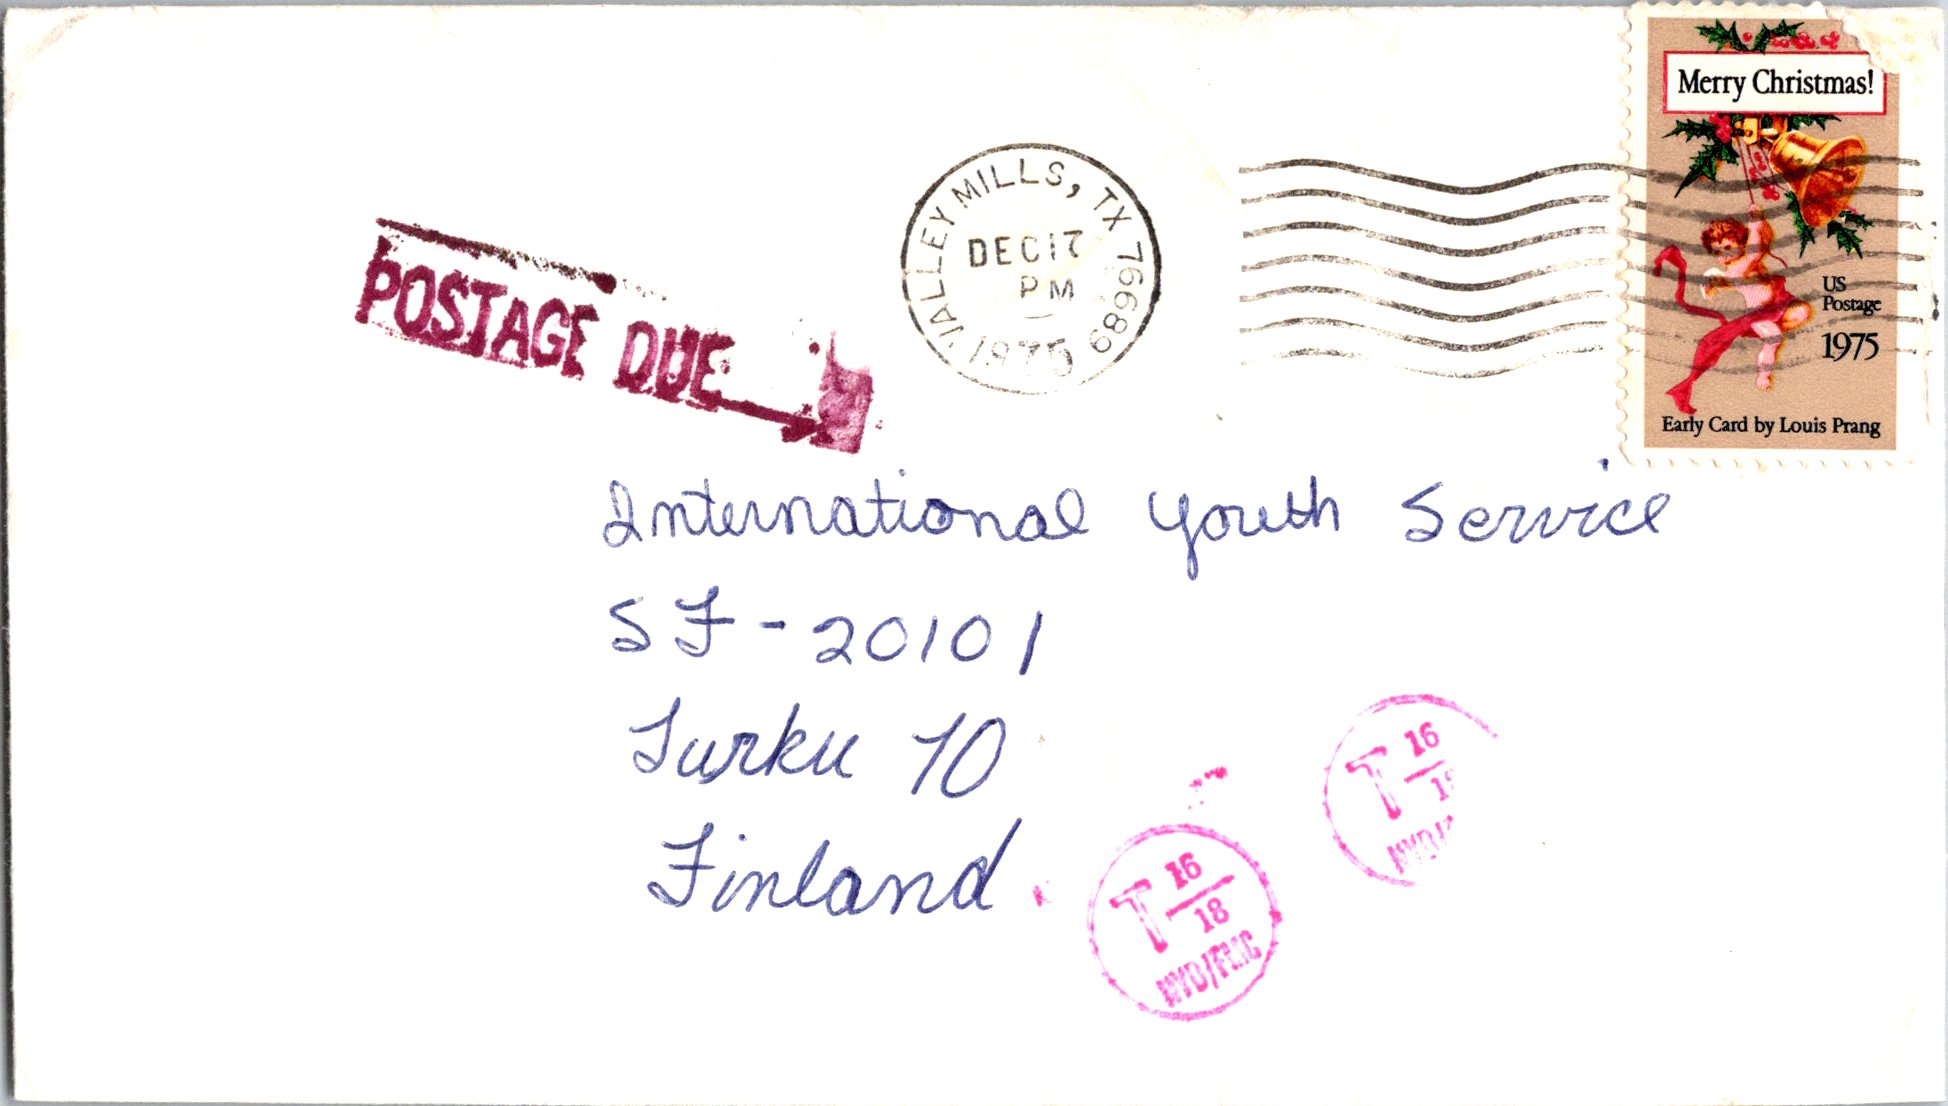 Merry Christmas!
US
Postage
1975
Early Card by Louis Prang
VALLEY MILLS, TX 76689
DEC 17
PM
1975
POSTAGE DUE
International Youth Service
SF-20101
Turku 10
Finland
T 16
18
NYD/FMC
T 16
18